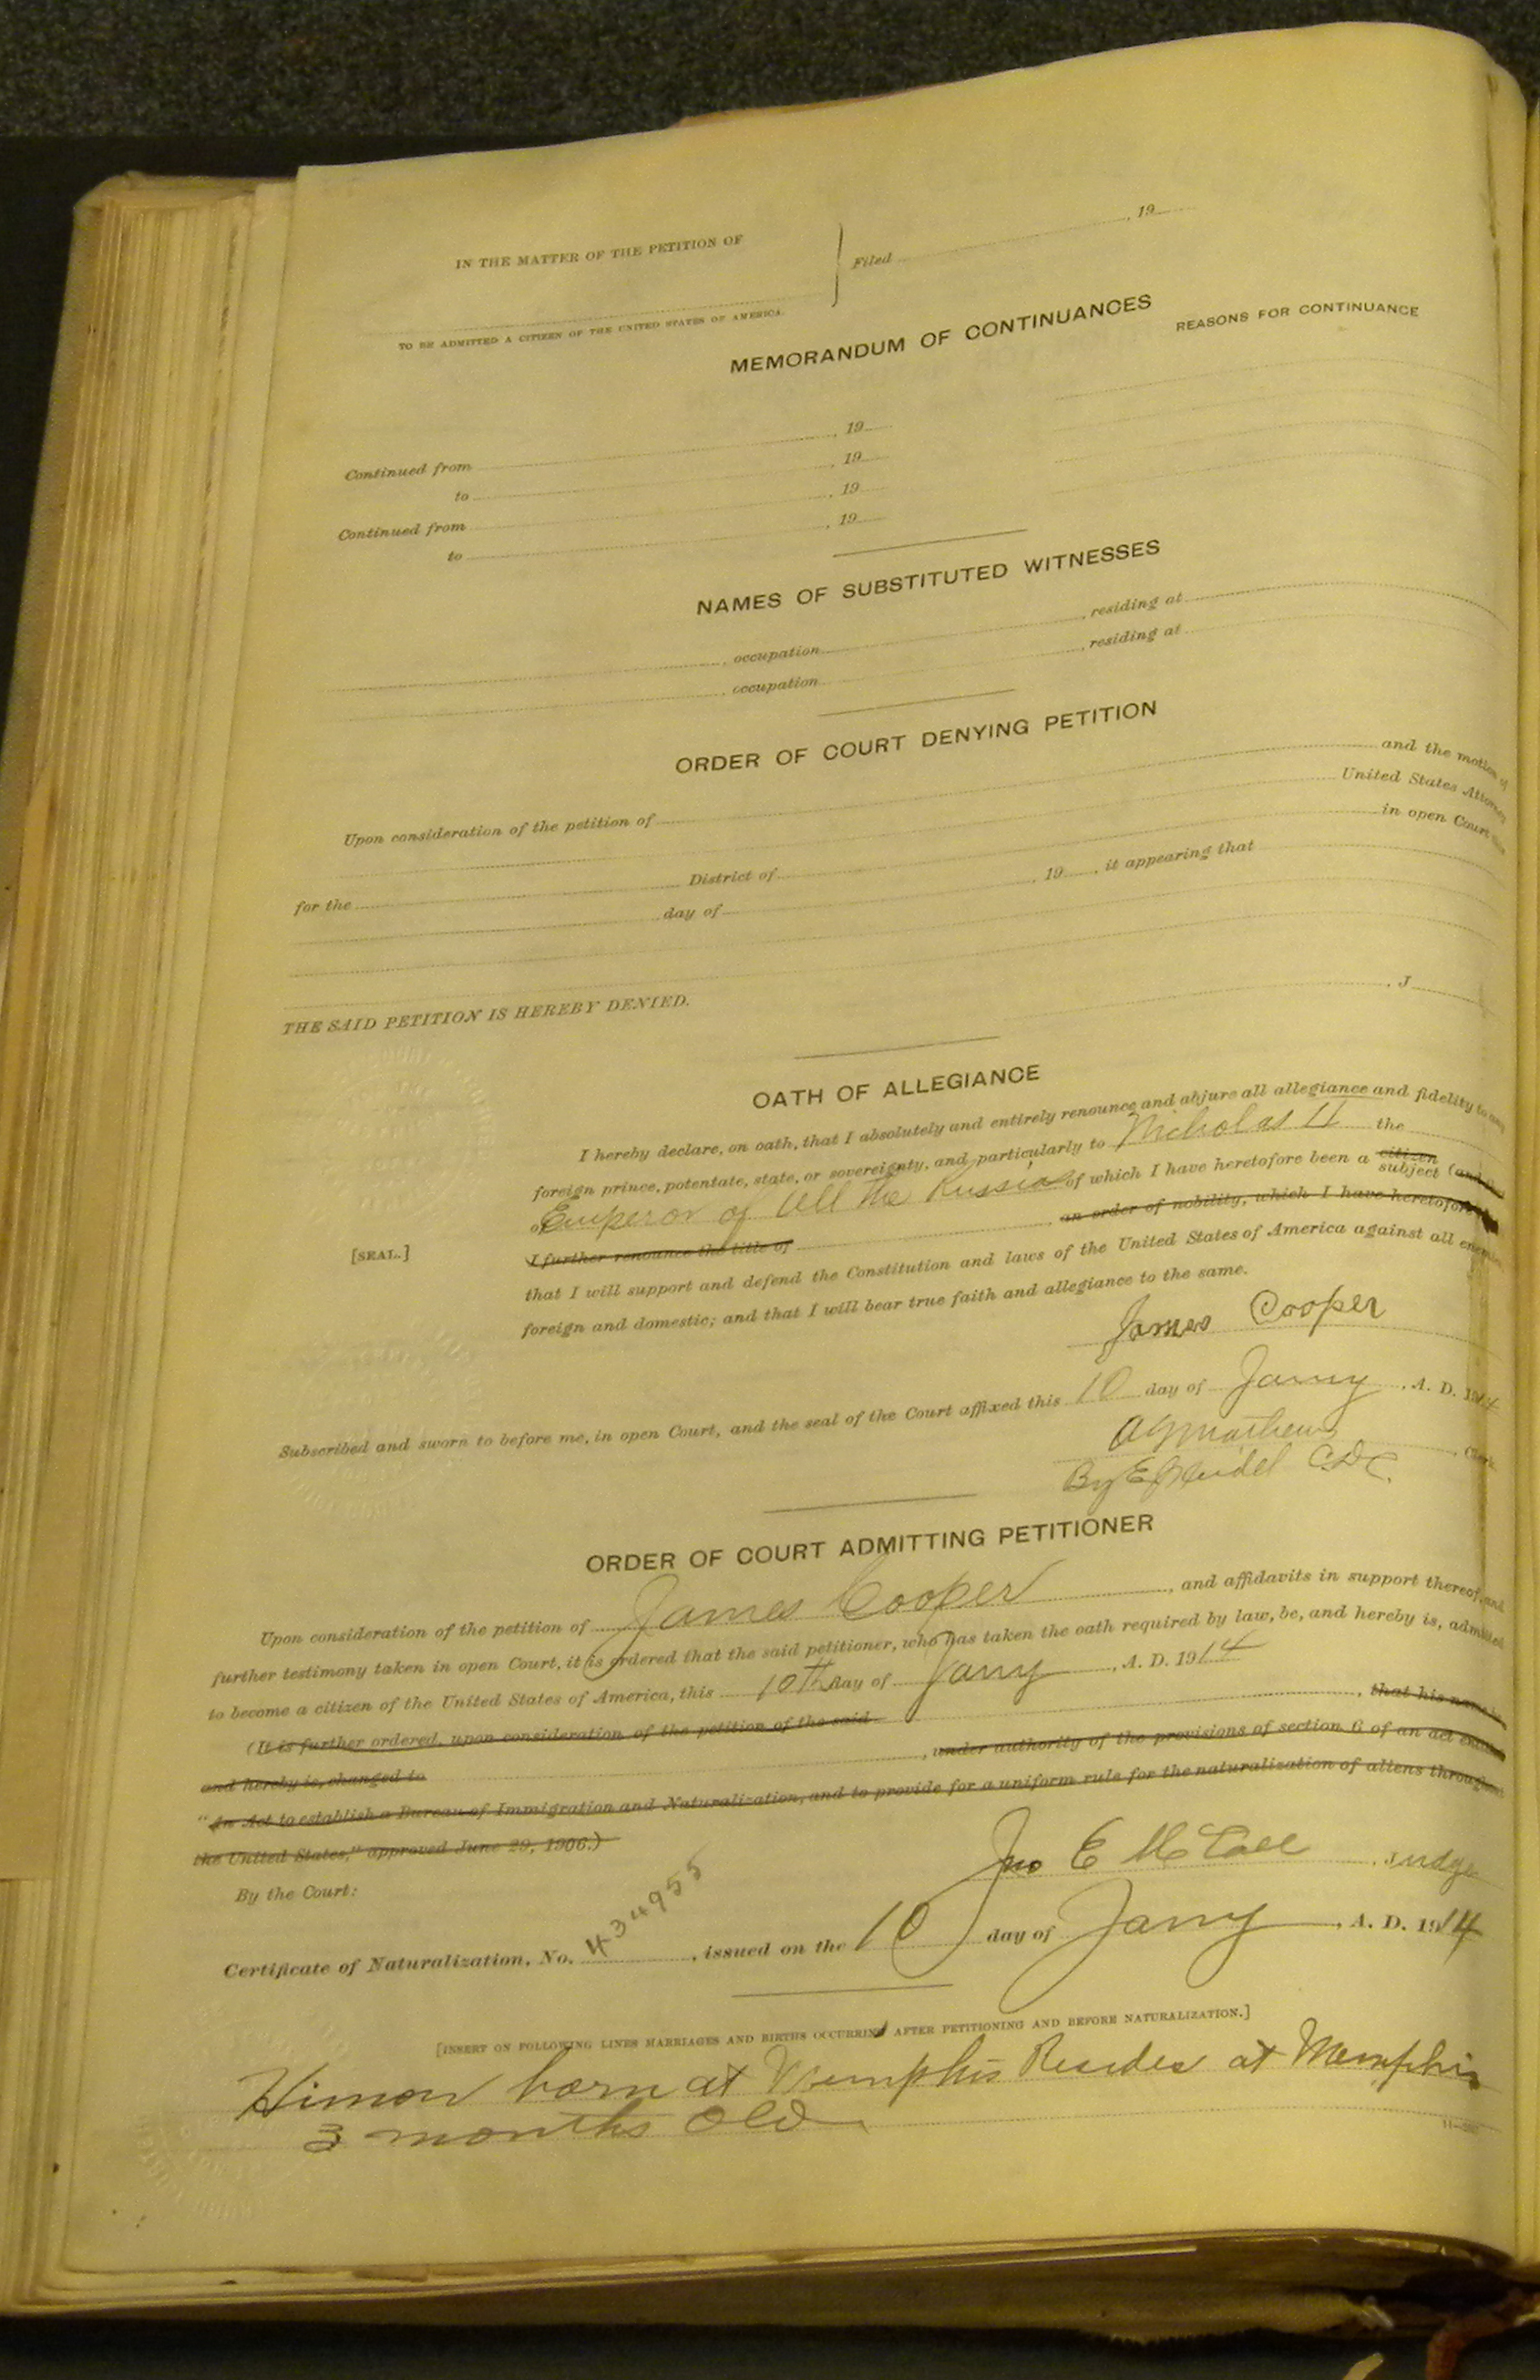 IN THE MATTER OF THE PETITION OF
Filed , 19
TO BE ADMITTED A CITIZEN OF THE UNITED STATES OF AMERICA.
MEMORANDUM OF CONTINUANCES
REASONS FOR CONTINUANCE
Continued from , 19
to , 19
Continued from , 19
to , 19
NAMES OF SUBSTITUTED WITNESSES
, occupation , residing at
, occupation , residing at
ORDER OF COURT DENYING PETITION
Upon consideration of the petition of and the motion of
United States Attorney
for the District of in open Court this
day of , 19 , it appearing that
THE SAID PETITION IS HEREBY DENIED.
, J
OATH OF ALLEGIANCE
I hereby declare, on oath, that I absolutely and entirely renounce and abjure all allegiance and fidelity to any
foreign prince, potentate, state, or sovereignty, and particularly to Nicholas II the
Emperor of all the Russias of which I have heretofore been a citizen subject (and
I further renounce the title of , an order of nobility, which I have heretofore
that I will support and defend the Constitution and laws of the United States of America against all enemies
foreign and domestic; and that I will bear true faith and allegiance to the same.
[SEAL.]
James Cooper
Subscribed and sworn to before me, in open Court, and the seal of the Court affixed this 10 day of Janny , A. D. 1914
, Clerk
By
ORDER OF COURT ADMITTING PETITIONER
Upon consideration of the petition of James Cooper , and affidavits in support thereof, and
further testimony taken in open Court, it is ordered that the said petitioner, who has taken the oath required by law, be, and hereby is, admitted
to become a citizen of the United States of America, this 10th day of Janny , A. D. 1914
(It is further ordered, upon consideration of the petition of the said , that his name be,
and hereby is, changed to , under authority of the provisions of section 6 of an act
"An Act to establish a Bureau of Immigration and Naturalization, and to provide for a uniform rule for the naturalization of aliens throughout
the United States," approved June 29, 1906.)
By the Court:
Jno E McCall , Judge
Certificate of Naturalization, No. 434955 , issued on the 10 day of Janny , A. D. 1914
[INSERT ON FOLLOWING LINES MARRIAGES AND BIRTHS OCCURRING AFTER PETITIONING AND BEFORE NATURALIZATION.]
Himon born at Memphis Resides at Memphis
3 months old